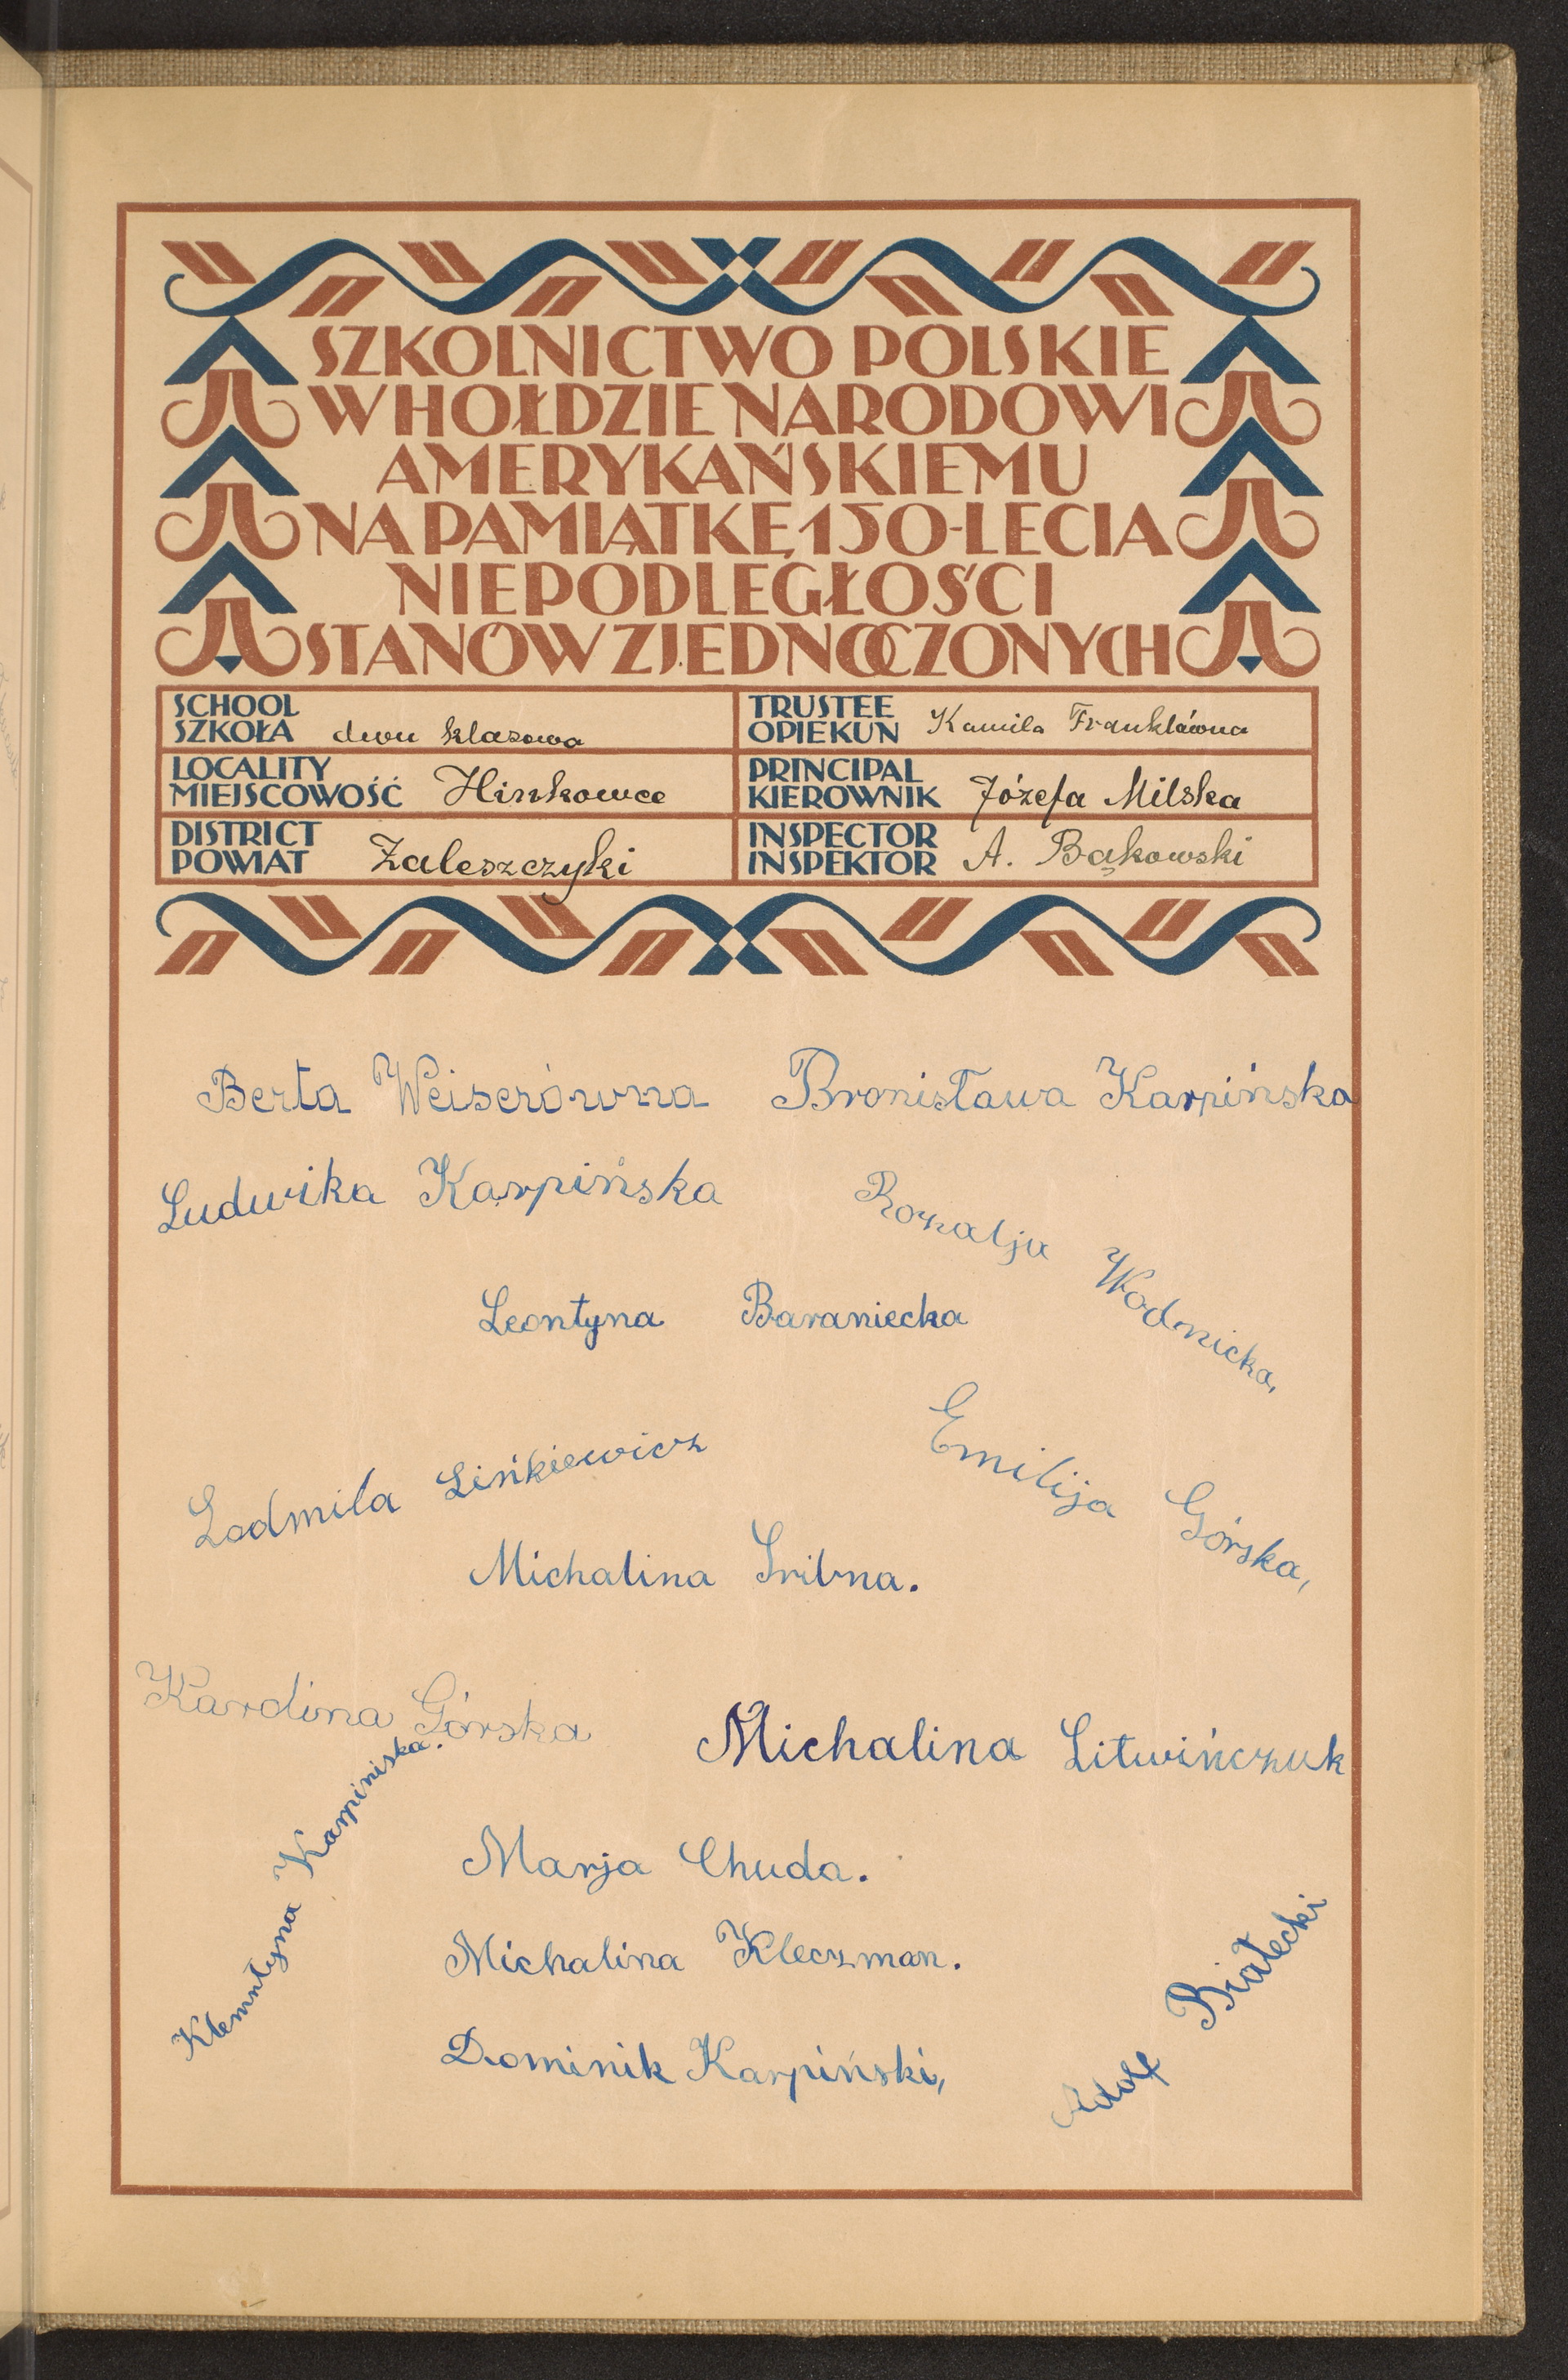 SZKOLNICTWO POLSKIE
W HOŁDZIE NARODOWI
AMERYKAŃSKIEMU
NA PAMIĄTKĘ 150-LECIA
NIEPODLEGŁOŚCI
STANÓW ZJEDNOCZONYCH
SCHOOL
SZKOŁA dwu klasowa
TRUSTEE
OPIEKUN Kamila Franklówna
LOCALITY
MIEJSCOWOŚĆ Hinkowce
PRINCIPAL
KIEROWNIK Józefa Milska
DISTRICT
POWIAT Zaleszczyki
INSPECTOR
INSPEKTOR A. Bąkowski
Berta Weiserówna
Bronisława Karpińska
Ludwika Karpińska
Rozalja Wodnicka,
Leontyna Baraniecka
Lodmila Lińkiewicz
Emilija Górska,
Michalina Sribna.
Karolina Górska
Michalina Litwińczuk
Klemntyna Karpiniska.
Marja Chuda.
Michalina Kleczman.
Adolf Białecki
Dominik Karpiński,